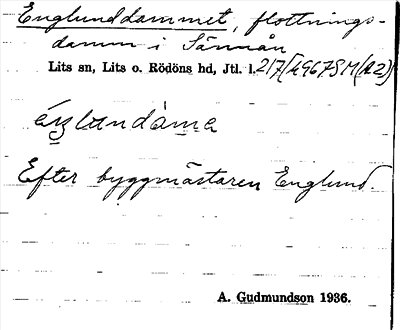 Englunddammet, flottnings-
damm i Sännån
Lits sn, Lits o. Rödöns hd, Jtl. l.
Efter byggmästaren Englund.
A. Gudmundson 1936.